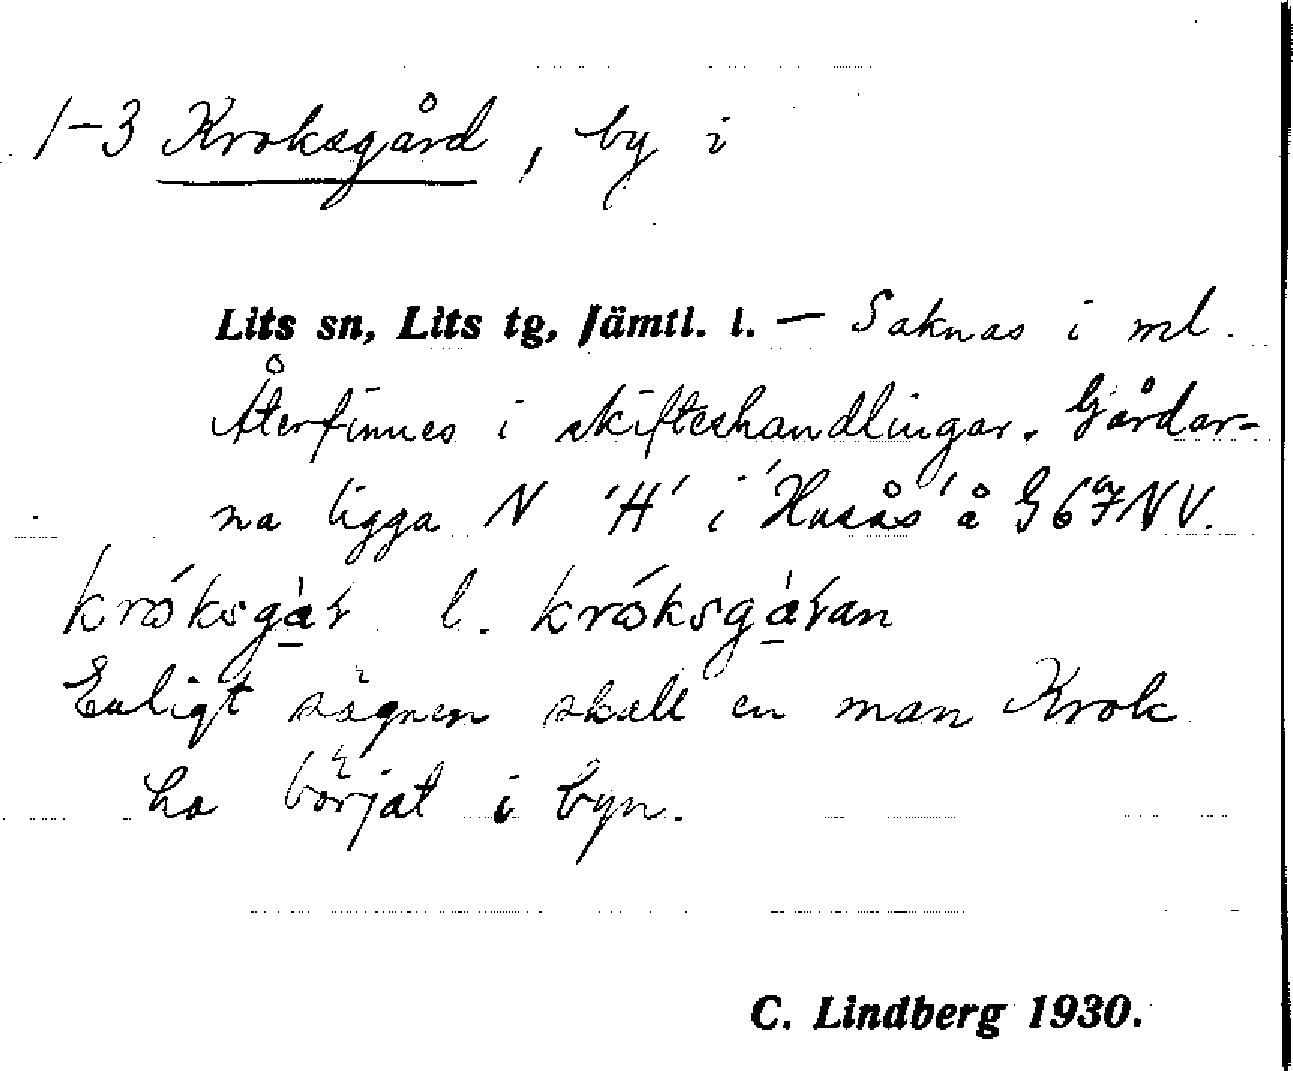 1-3 Kroksgård, by i
Lits sn, Lits tg, Jämtl. l. — Saknas i ml.
Återfinnes i skifteshandlingar. Gårdar-
na ligga N 'H' i 'Husås' å G67NV.
l.
Enligt sägnen skall en man Krok
ha börjat i byn.
C. Lindberg 1930.